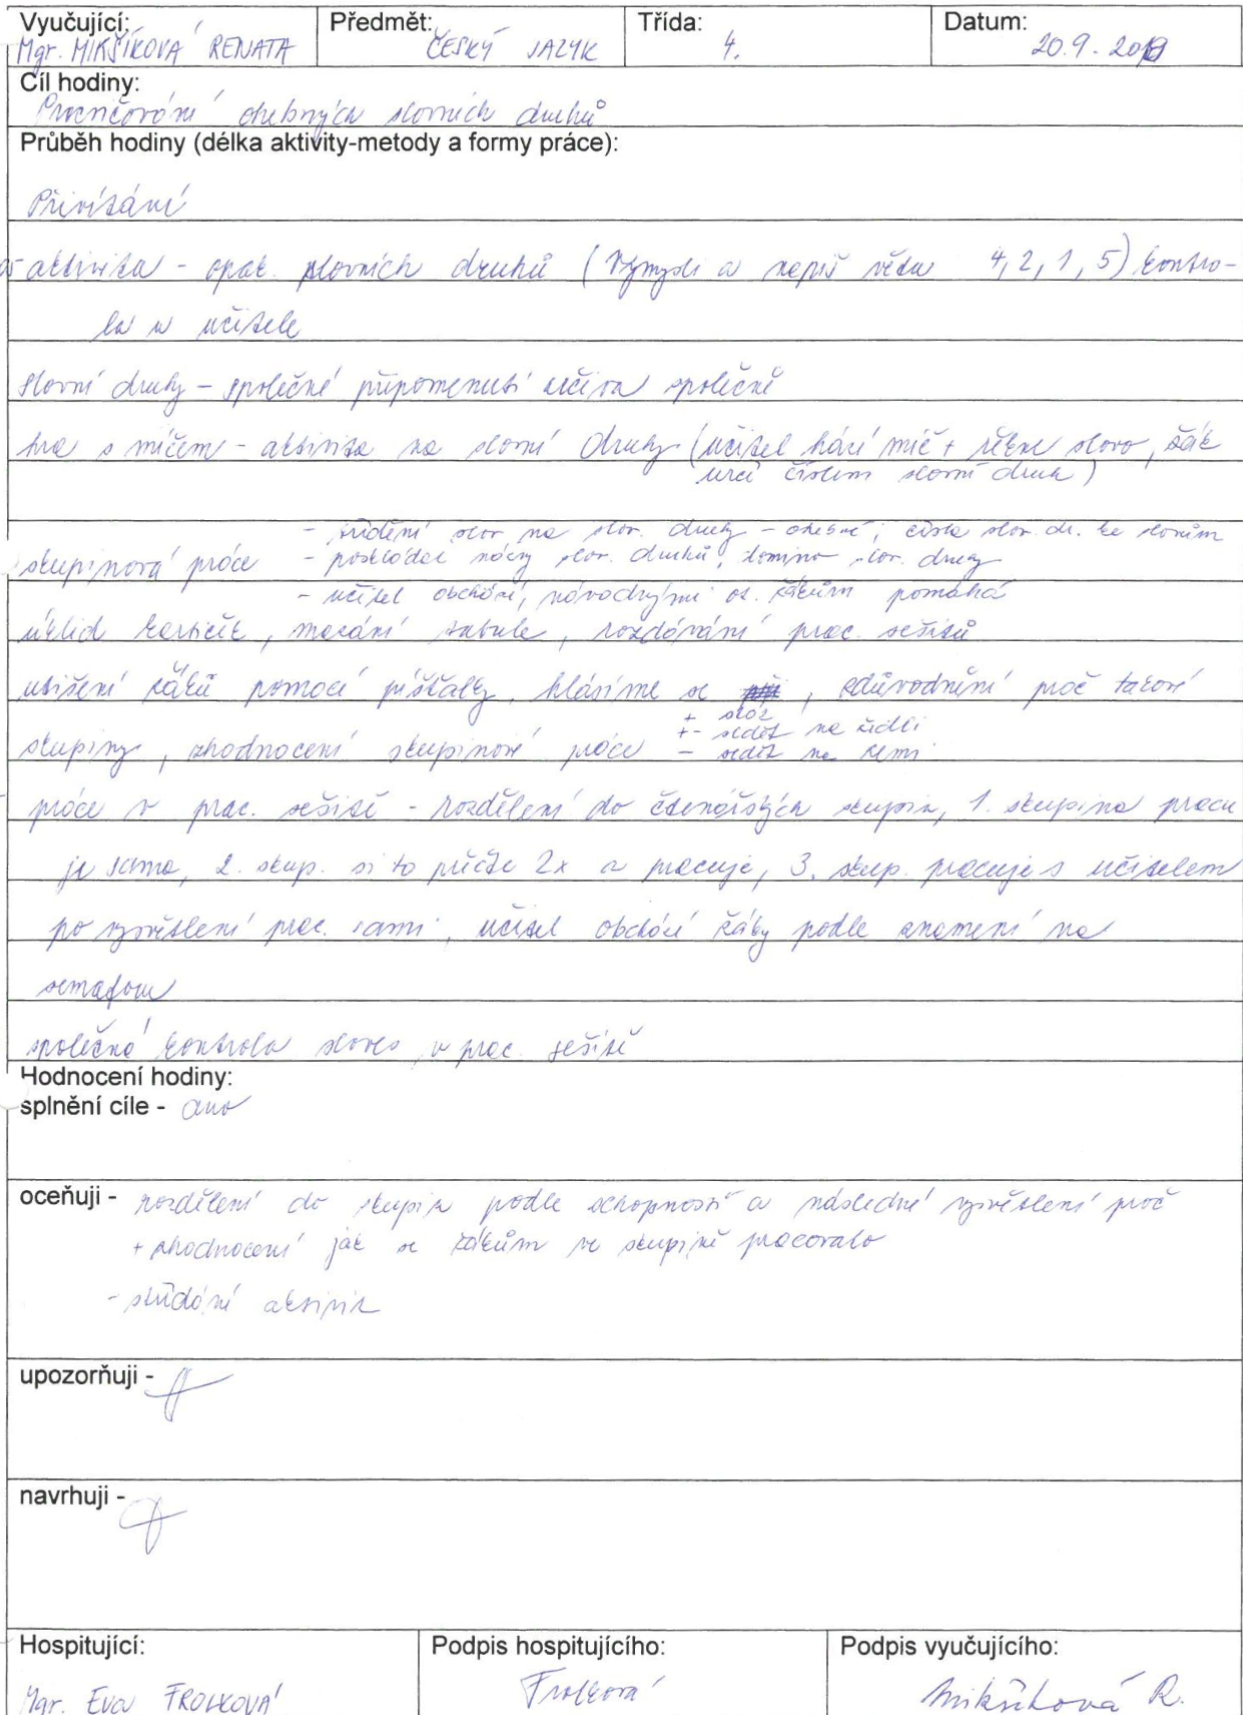 Vyučující: Předmět: Třída: Datum:
Mgr. MIKŠÍKOVÁ RENATA ČESKÝ JAZYK 4. 20.9.2019
Cíl hodiny:
Procvičování ohebných slovních druhů
Průběh hodiny (délka aktivity-metody a formy práce):
Přivítání
aktivita - opak. slovních druhů (Vymysli a napiš větu 4, 2, 1, 5) kontro-
la u učitele
slovní druhy - společné připomenutí učiva společně
hra s míčem - aktivita na slovní druhy (učitel hází míč + řekne slovo, žák
určí číslem slovní druh)
- třídění slov na slov. druhy - ohebné, čísla slov. dr. ke slovům
skupinová práce - poskládat názvy slov. druhů, domino slov. druhy
- učitel obchází, návodnými ot. žákům pomáhá
úklid kartiček, mazání tabule, rozdávání prac. sešitů
utišení žáků pomocí píšťalky, hlásíme se, zdůvodnění proč takové
+ stoj
skupiny, zhodnocení skupinové práce +- sedět na židli
- sedět na zemi
práce v prac. sešitě - rozdělení do čtenářských skupin, 1. skupina pracu
je sama, 2. skup. si to přečte 2x a pracuje, 3. skup. pracuje s učitelem
po vysvětlení prac. sami, učitel obchází žáky podle znamení na
semaforu
společná kontrola sloves v prac. sešitě
Hodnocení hodiny:
splnění cíle - ano
oceňuji - rozdělení do skupin podle schopností a následné vysvětlení proč
+ zhodnocení jak se žákům ve skupině pracovalo
- střídání aktivit
upozorňuji -
navrhuji -
Hospitující: Podpis hospitujícího: Podpis vyučujícího:
Mgr. Eva FROLKOVÁ Frolková Mikšíková R.